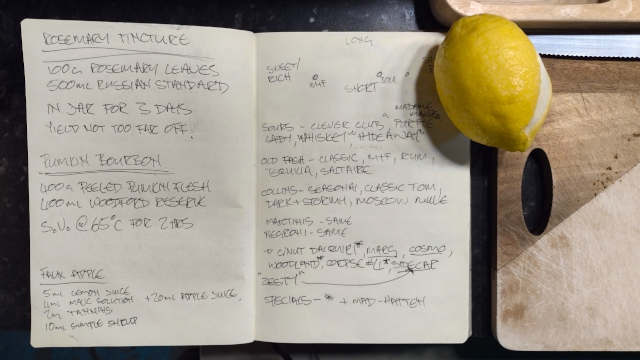 ROSEMARY TINCTURE
100G ROSEMARY LEAVES
500ML RUSSIAN STANDARD
IN JAR FOR 3 DAYS
YIELD NOT TOO FAR OFF!
BOURBON
400G PEELED FLESH
400ML WOODFORD RESERVE
@ 65°C FOR 2 HRS
FAUX APPLE
5ML LEMON JUICE
MALIC SOLUTION + 20ML APPLE JUICE,
10ML SIMPLE SYRUP
LONG
SWEET/
RICH
SHORT SOUR
SOURS - CLOVER CLUB,
LADY, WHISKEY "HIDEAWAY"
OLD FASH - CLASSIC, RUM,
TEQUILA,
COLLINS - SEASONAL, CLASSIC TOM,
DARK + STORMY, MOSCOW MULE
MARTINIS - SAME
NEGRONI - SAME
MARG, COSMO,
WOODLAND CORPSE SIDECAR
ZESTY
SPECIALS - + MAD-HATTER